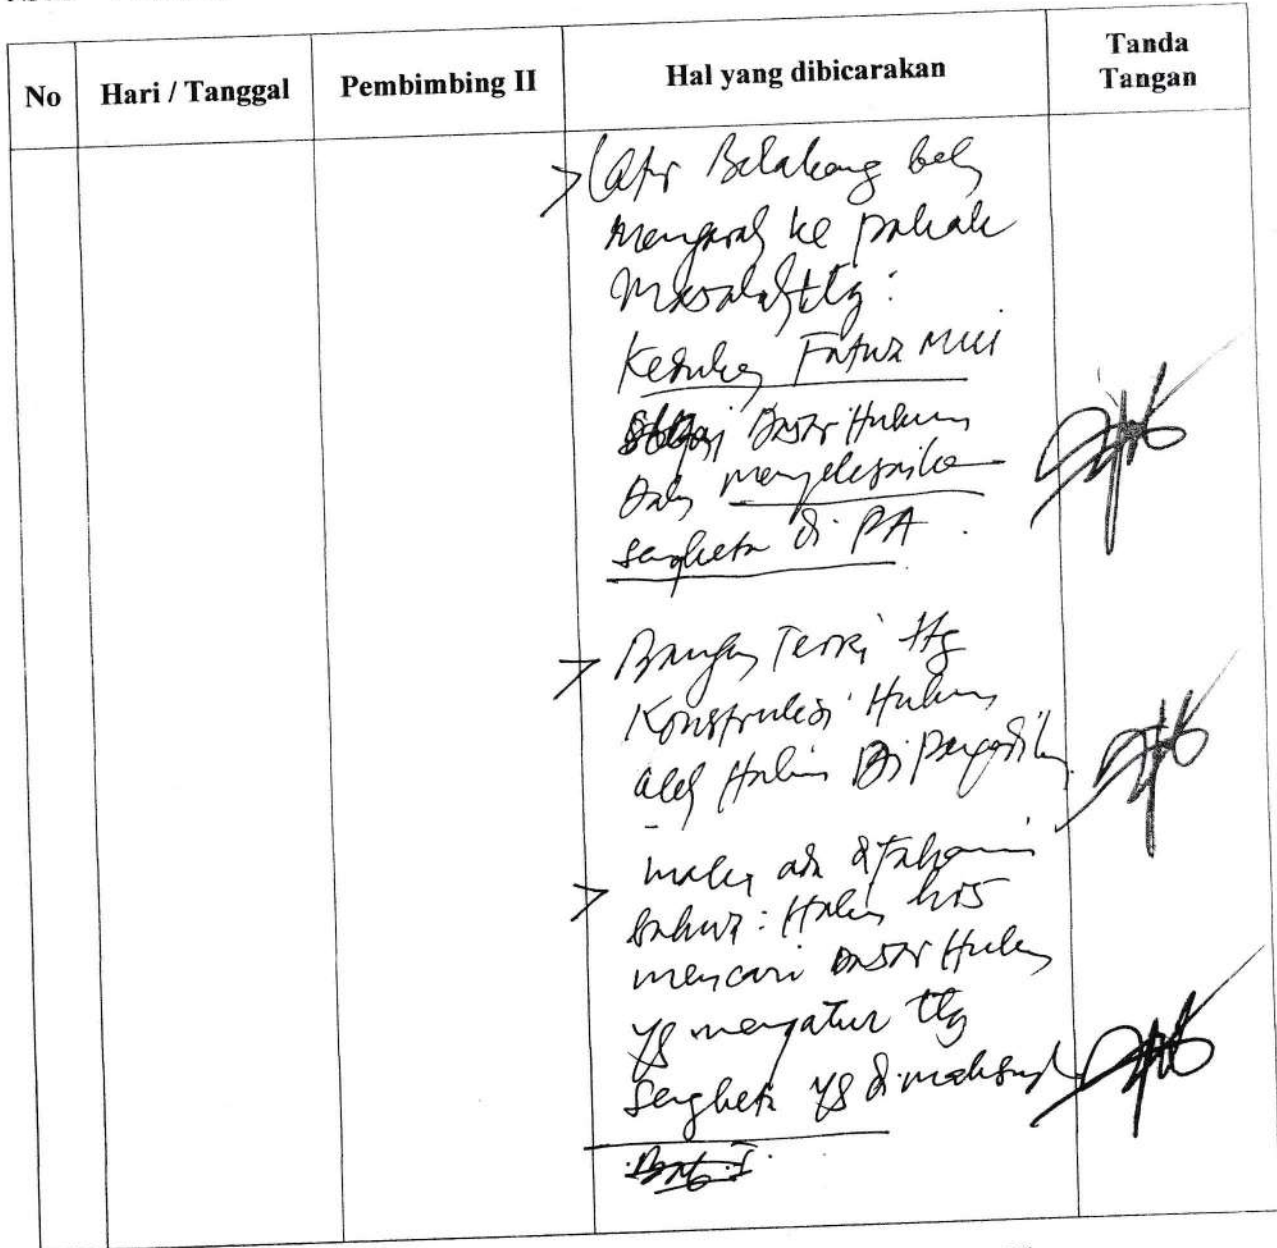 No Hari / Tanggal Pembimbing II Hal yang dibicarakan Tanda Tangan
> Latar Belakang bel
mengarah ke pokok
Masalah ttg :
Keduk Fatwa MUI
sbgai Dasar Hukum
Dalm menyelesaika
sengketa di PA .
> Bangun Teori ttg
Konstruksi Hukum
oleh Hakim Di Pengadiln
> maka ada difahami
bahwa : Hakim hrs
mencari Dasar Hukum
yg mengatur ttg
sengketa yg dimaksud